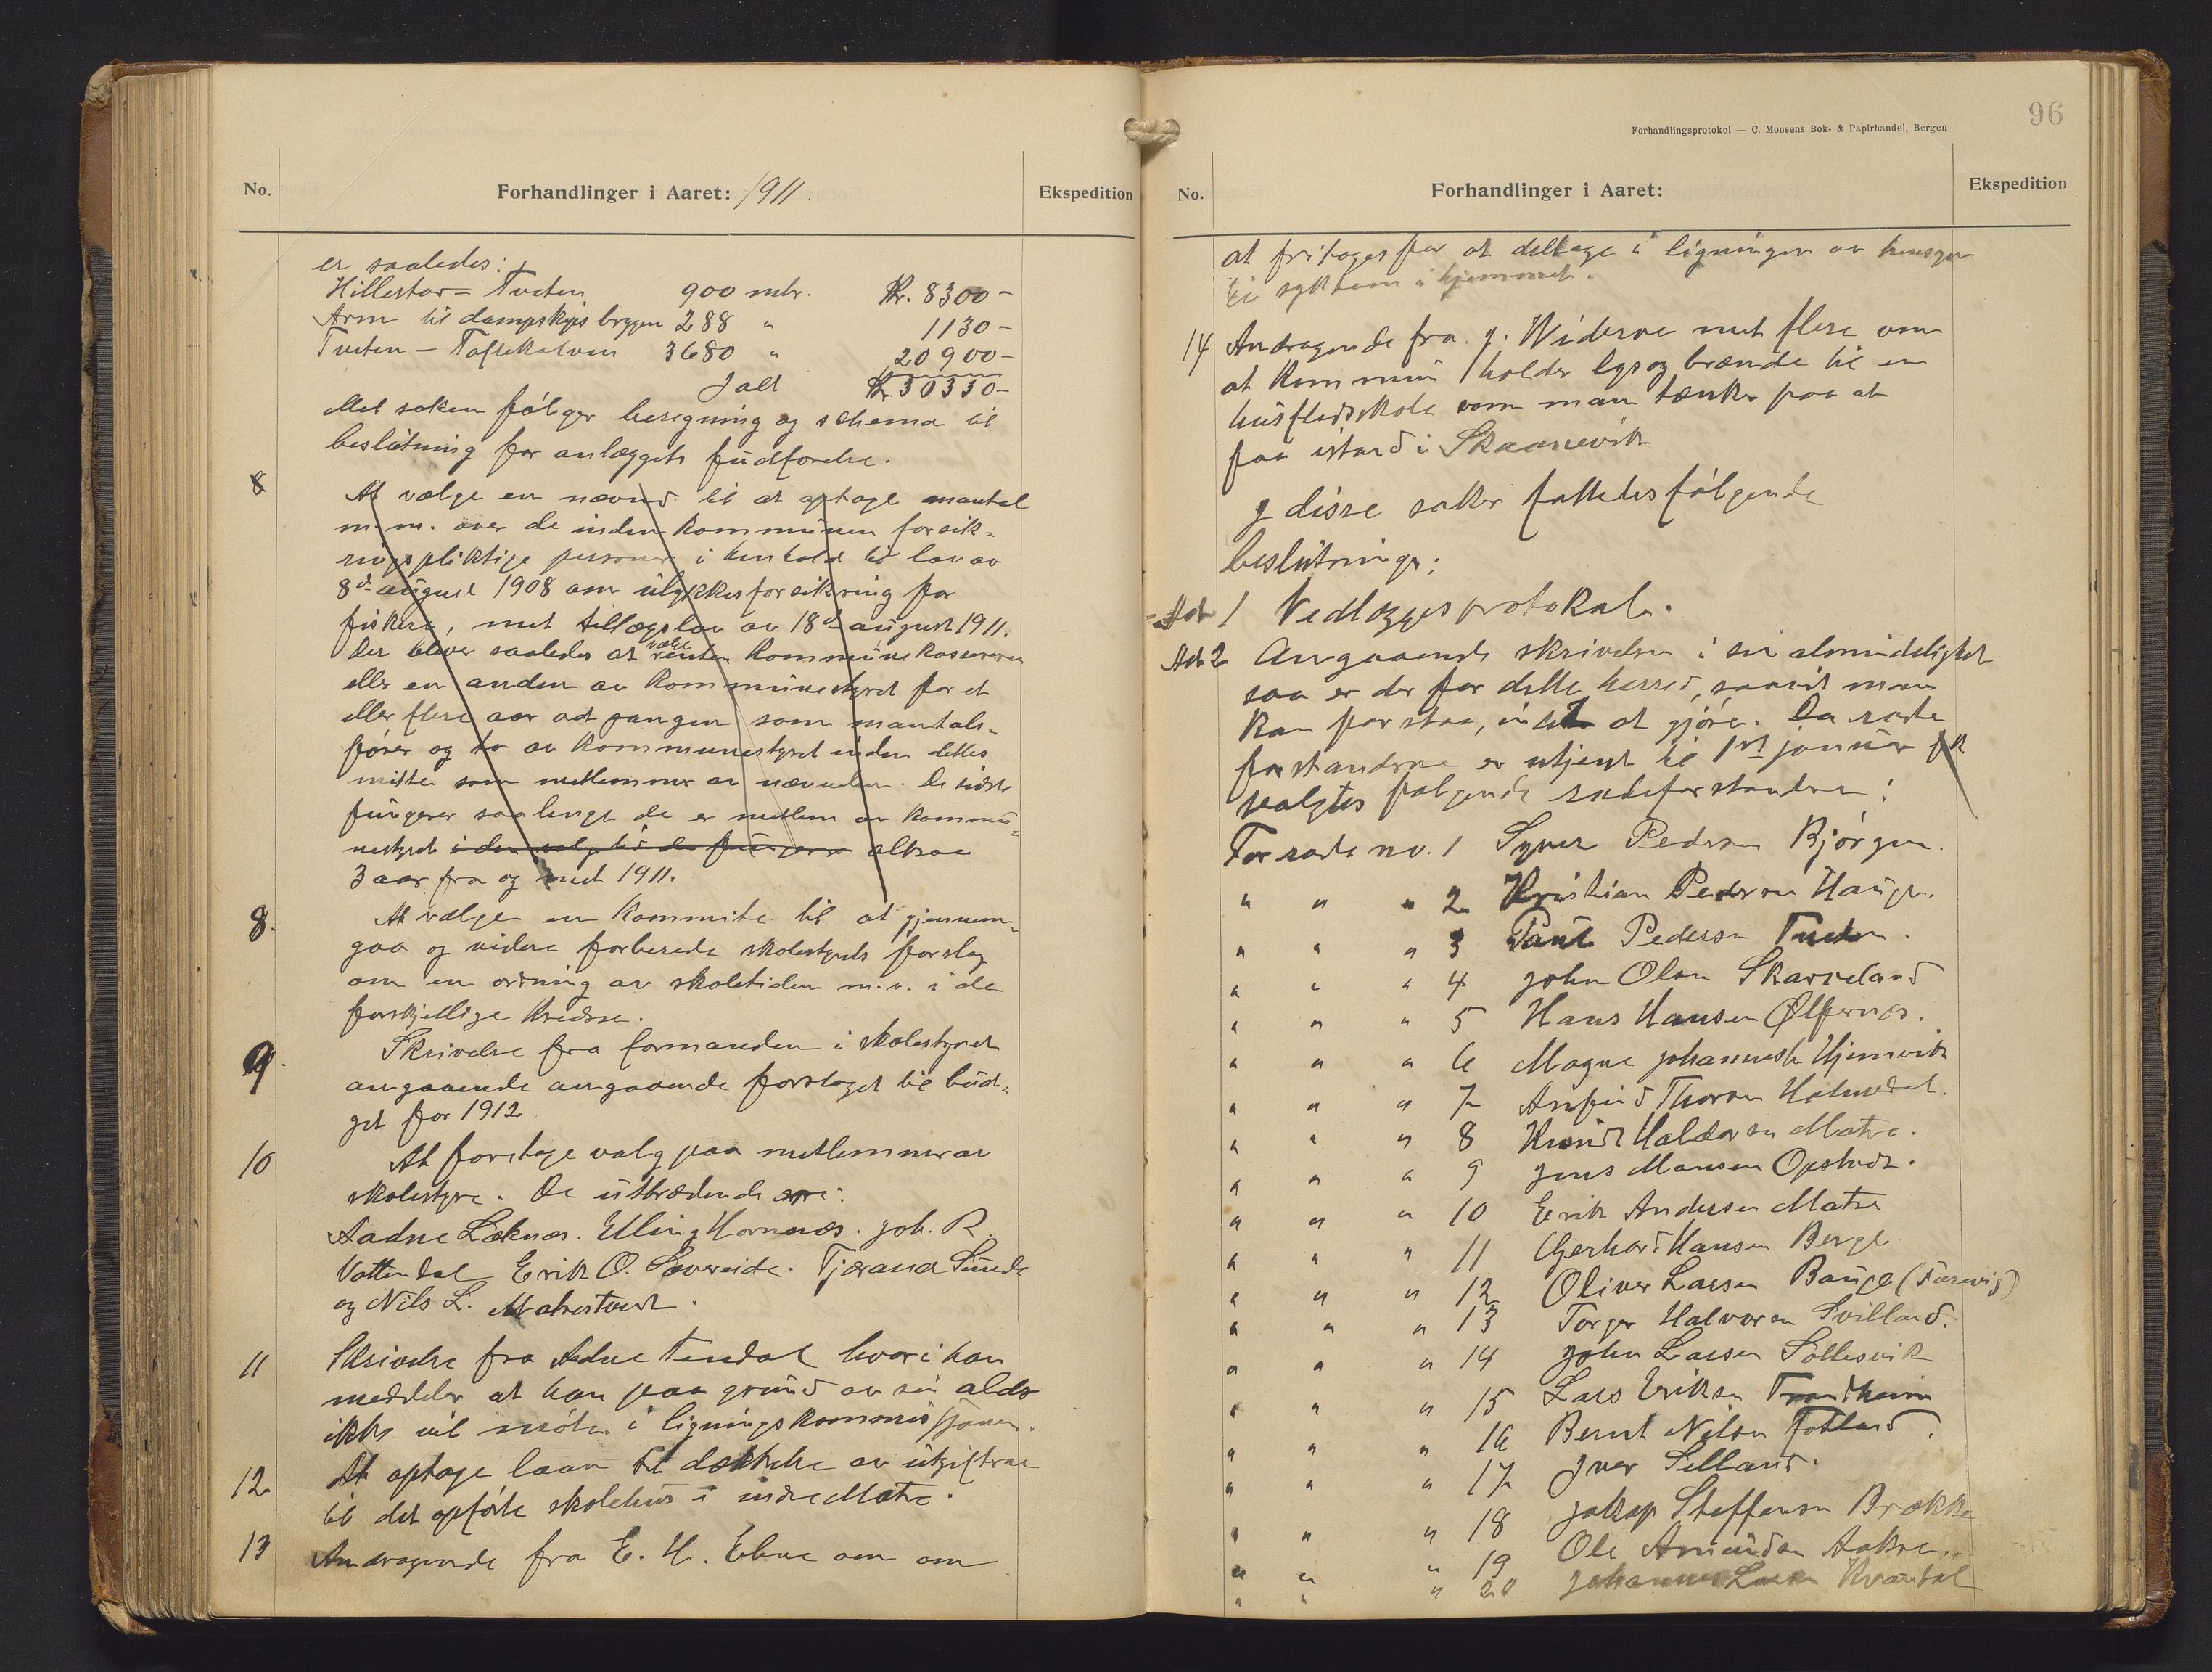 No. Forhandlinger i Aaret: 1911. Ekspedition
er saaledes:
Hillestar - Tveten 900 mtr. Kr. 8300 -
Arm til dampskips bryggen 288 " 1130 -
Tveten - 3680 " 20900 -
Ialt Kr. 30330 -
Med saken følger beregning og schema til
beslutning for anlæggets
8 At vælge en nævnd til at optage mantal
m.m. over de inden kommunen forsik-
ringspliktige personer i henhold til lov av
8d august 1908 om ulykkesforsikring for
fiskere, med tillægslov av 18d august 1911.
Der bliver saaledes at vælge enten kommunekassereren
eller en anden av kommunestyret for et
eller flere aar ad gangen som mantals-
fører og to av kommunestyret inden dettes
midte som medlemmer av nævnden. De sidste
fungerer saalenge de er medlem av kommu-
nestyret altsaa
3 aar fra og med 1911.
8. At vælge en kommite til at gjennem-
gaa og videre forberede skolestyrets forslag
om en ordning av skoletiden m.v. i de
forskjellige kredse.
9. Skrivelse fra formanden i skolestyret
angaaende angaaende forslaget til bud-
get for 1912
10 At foretage valg paa medlemmer av
skolestyre. De uttrædende er:
Aadne Løknæs. Elling Hornnæs. Joh. R.
Vattendal Erik O. Søvereide. Tjøranda Sunde
og Nils L. Matrestuen.
11 Skrivelse fra Aadne hvori han
meddeler at han paa grund av sin alder
ikke vil møte i ligningskommissjonen.
12 At optage laan til dækkelse av utgifterne
til det opførte skolehus i indre Matre.
13 Andragende fra E. H. Ebne om om
96
Forhandlingsprotokol — C. Monsens Bok- & Papirhandel, Bergen
No. Forhandlinger i Aaret: Ekspedition
at fritages for at deltage i ligningen av hensyn
til sykdom i hjemmet.
14 Andragende fra J. Widerøe med flere om
at kommunen holder lys og brænde til en
husflidsskole som man tænker paa at
faa istand i Skaanevik
I disse saker fattedes følgende
beslutninger:
Ad 1 Vedlægges protokolen.
Ad 2 Angaaende skrivelsen i sin almindelighet
saa er der for dette herred, saavit man
kan forstaa, intet at gjøre. Da rode
forstanderne er utjent til 1ste januar
valgtes følgende rodeforstandere:
For rode nr. 1 Syver Pedersen Bjørgen.
" " " 2 Kristian Pedersen Hauge.
" " " 3 Paul Pedersen Tveten.
" " " 4 John Olsen Skarveland
" " " 5 Hans Hansen Ølfernæs.
" " " 6 Magne Johannesen Hjemvik
" " " 7 Arnfind Thoresen Holmedal.
" " " 8 Knud Haldorsen Matre.
" " " 9 Jens Monsen Opstved.
" " " 10 Erik Andersen Matre
" " " 11 Gerhard Hansen Berge
" " " 12 Oliver Larsen Bauge
" " " 13 Torger Halvorsen Tvilland.
" " " 14 John Larsen Sollesvik
" " " 15 Lars Eriksen Trondheim
" " " 16 Bernt Nilsen Fatland.
" " " 17 Iver Silland.
" " " 18 Jakop Steffensen Brække
" " " 19 Ole Amundsen Aakre.
" " " 20 Johannes Larsen Kvandal